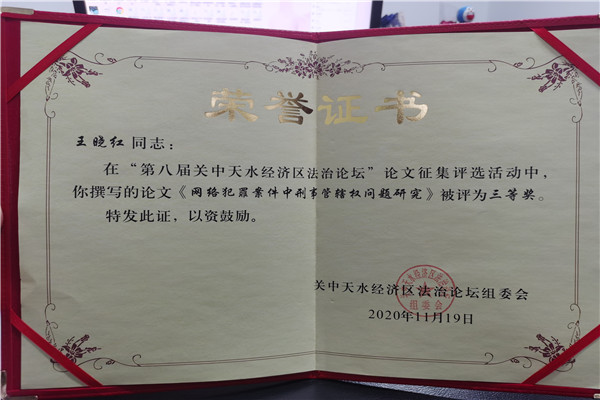 荣誉证书
王晓红同志：
在“第八届关中天水经济区法治论坛”论文征集评选活动中，
你撰写的论文《网络犯罪案件中刑事管辖权问题研究》被评为三等奖。
特发此证，以资鼓励。
关中天水经济区法治论坛组委会
组委会
2020年11月19日